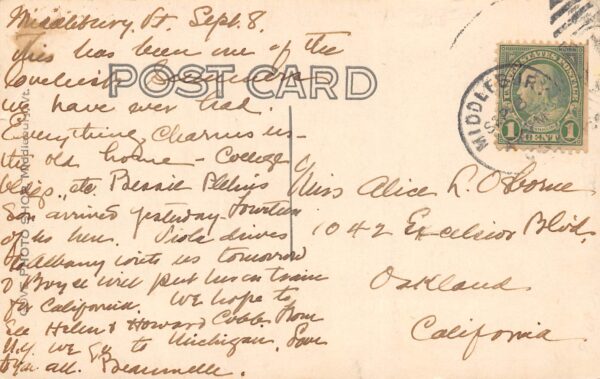 Middlebury, Vt. Sept. 8.
This has been one of the
loveliest summers
we have ever had.
Everything charms us -
the old home - College
bldgs, etc. Bessie
Son arrived yesterday - Fourteen
of us here. Viola drives
to Albany with us tomorrow
& Boyce will put us on train
for California. We hope to
see Helen & Howard Cobb. From
N.Y. we go to Michigan. Love
to you all.
POST CARD
PHOTO SHOP, Middlebury, Vt.
MIDDLEBURY
UNITED STATES POSTAGE
1 CENT 1
Miss Alice L. Osborne
1042 Excelsior Blvd.
Oakland
California